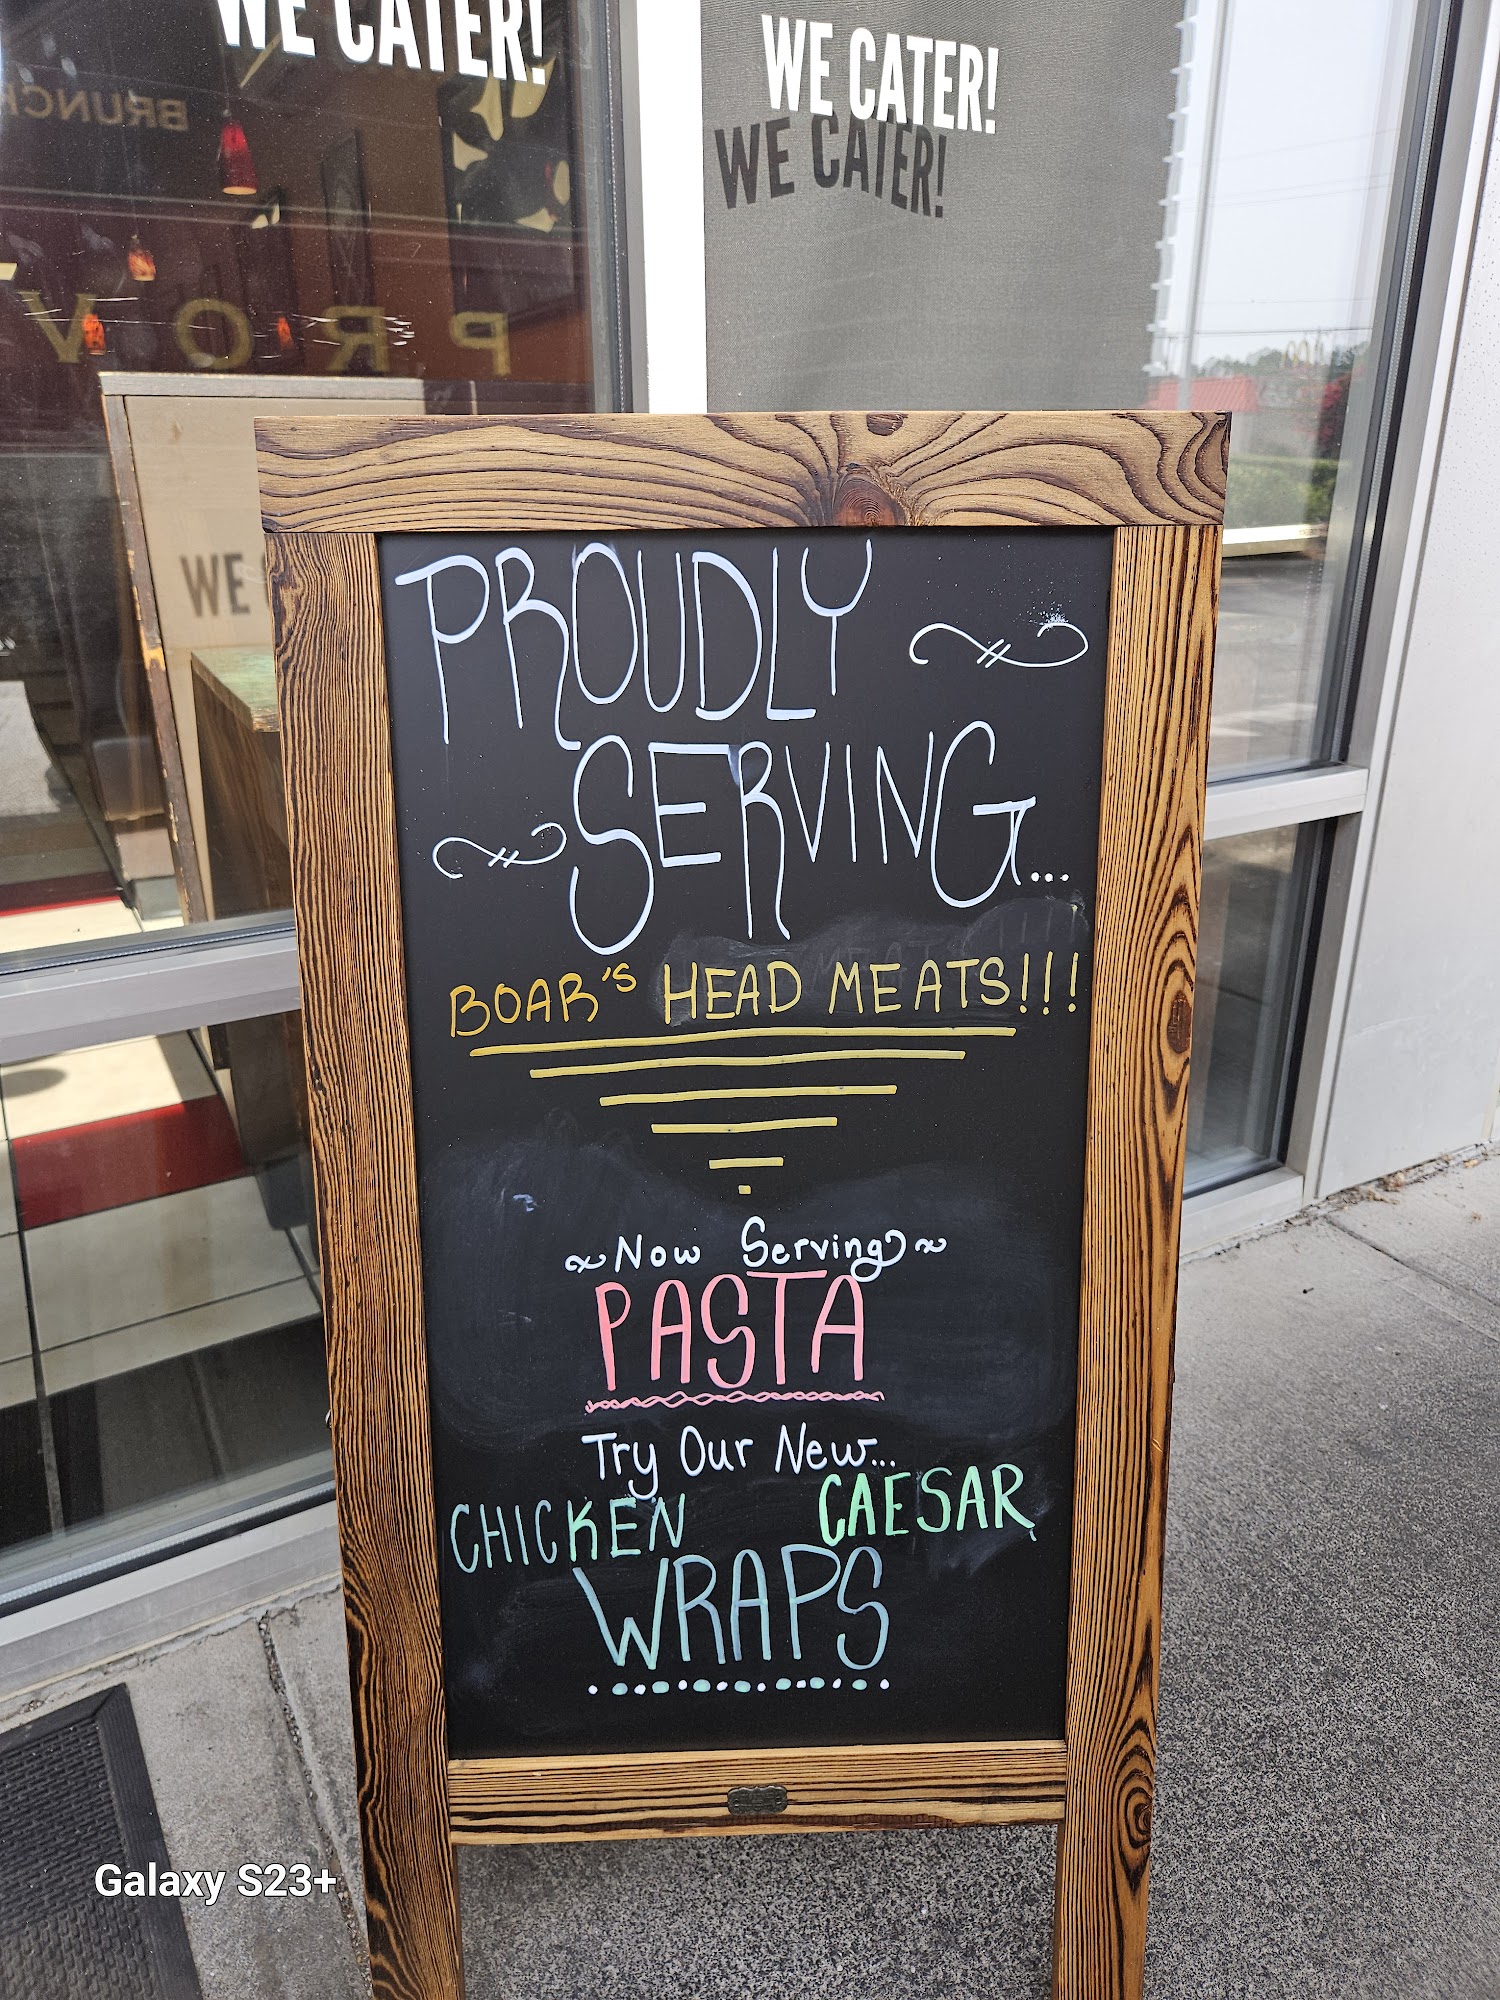 WE CATER!
WE CATER!
WE CATER!
BRUNCH
PROV
WE
PROUDLY
SERVING...
BOAR'S HEAD MEATS!!!
Now Serving
PASTA
Try Our New...
CHICKEN CAESAR
WRAPS
Galaxy S23+